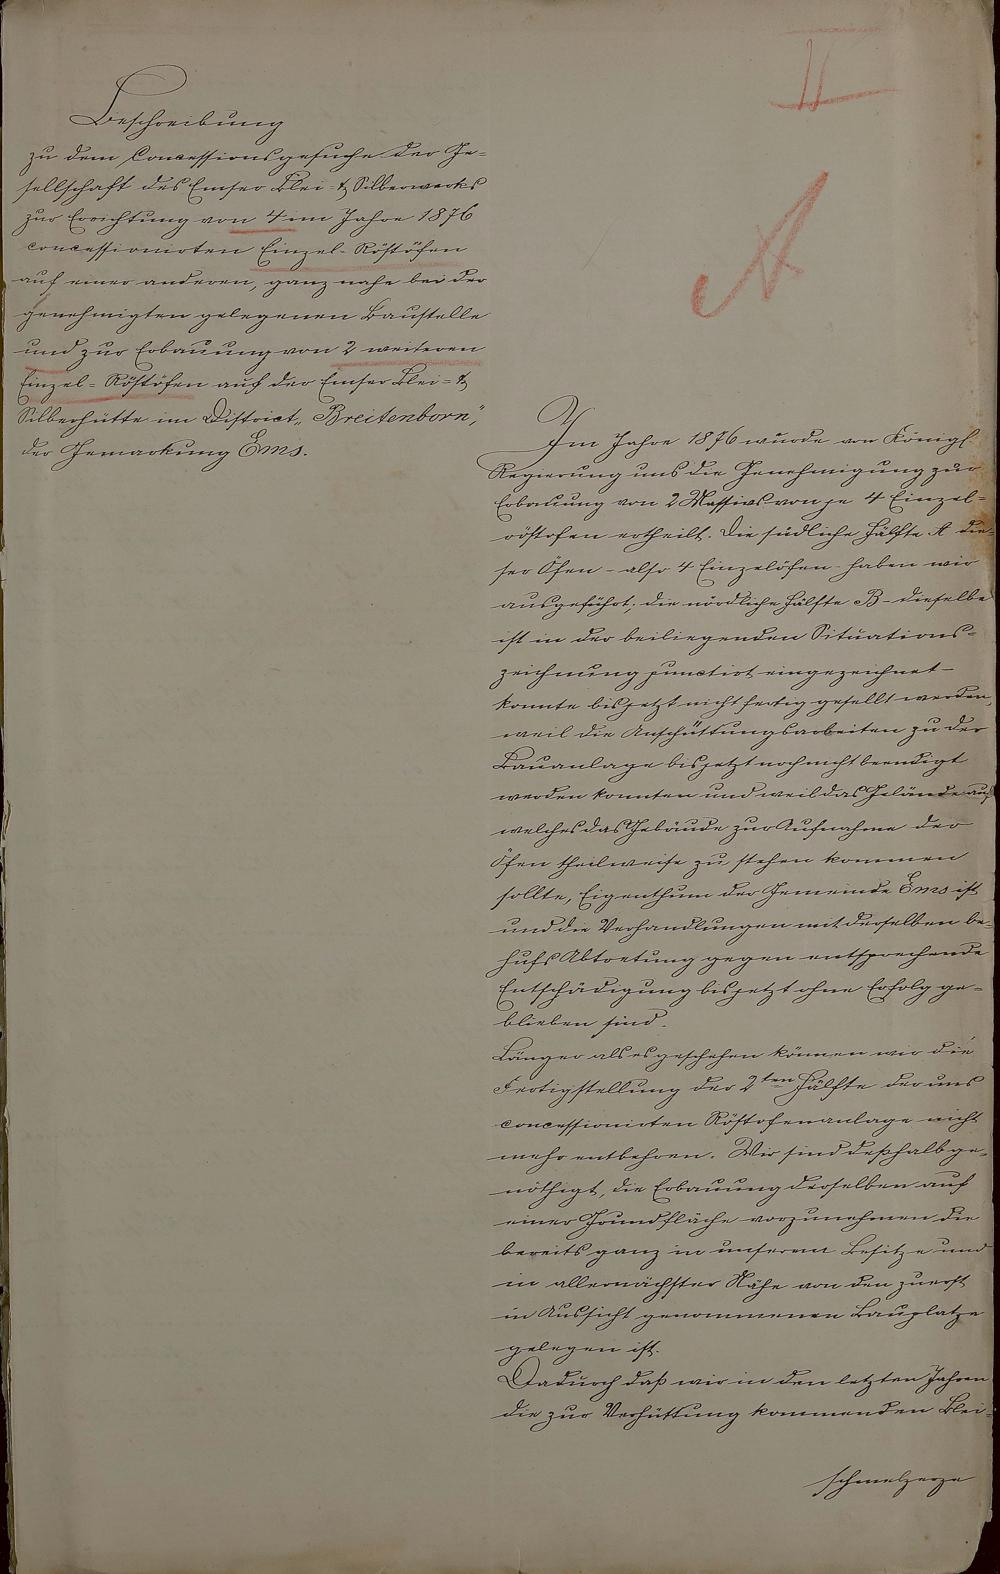 II
A
Beschreibung
zu dem Concessionsgesuche der Ge-
sellschaft des Emser Blei- & Silberwerks
zur Errichtung von 4 im Jahre 1876
concessionirten Einzel-Röstöfen
auf einer anderen, ganz nahe bei der
genehmigten gelegenen Baustelle
und zur Erbauung von 2 weiteren
Einzel-Röstöfen auf der Emser Blei- &
Silberhütte im District „Breitenborn",
der Gemarkung Ems.
Im Jahre 1876 wurde von Königl.
Regierung uns die Genehmigung zur
Erbauung von 2 Massivs von je 4 Einzel-
röstofen ertheilt. Die südliche Hälfte A die-
ser Öfen - also 4 Einzelöfen - haben wir
ausgeführt; die nördliche Hälfte B - dieselbe
ist in der beiliegenden Situations-
zeichnung punctirt eingezeichnet -
konnte bis jetzt nicht fertig gestellt werden,
weil die Anschüttungsarbeiten zu der
Bauanlage bis jetzt noch nicht beendigt
werden konnten und weil das Gelände auf
welches das Gebäude zur Aufnahme der
Öfen theilweise zu stehen kommen
sollte, Eigenthum der Gemeinde Ems ist
und die Verhandlungen mit derselben be-
hufs Abtretung gegen entsprechende
Entschädigung bis jetzt ohne Erfolg ge-
blieben sind.
Länger als es geschehen können wir die
Fertigstellung der 2ten Hälfte der uns
concessionirten Röstofenanlage nicht
mehr entbehren. Wir sind deßhalb ge-
nöthigt, die Erbauung derselben auf
einer Grundfläche vorzunehmen, die
bereits ganz in unserem Besitze und
in allernächster Nähe von den zuerst
in Aussicht genommenen Bauplatze
gelegen ist.
Dadurch daß wir in den letzten Jahren
die zur Verhüttung kommenden Blei-
schmelzerze